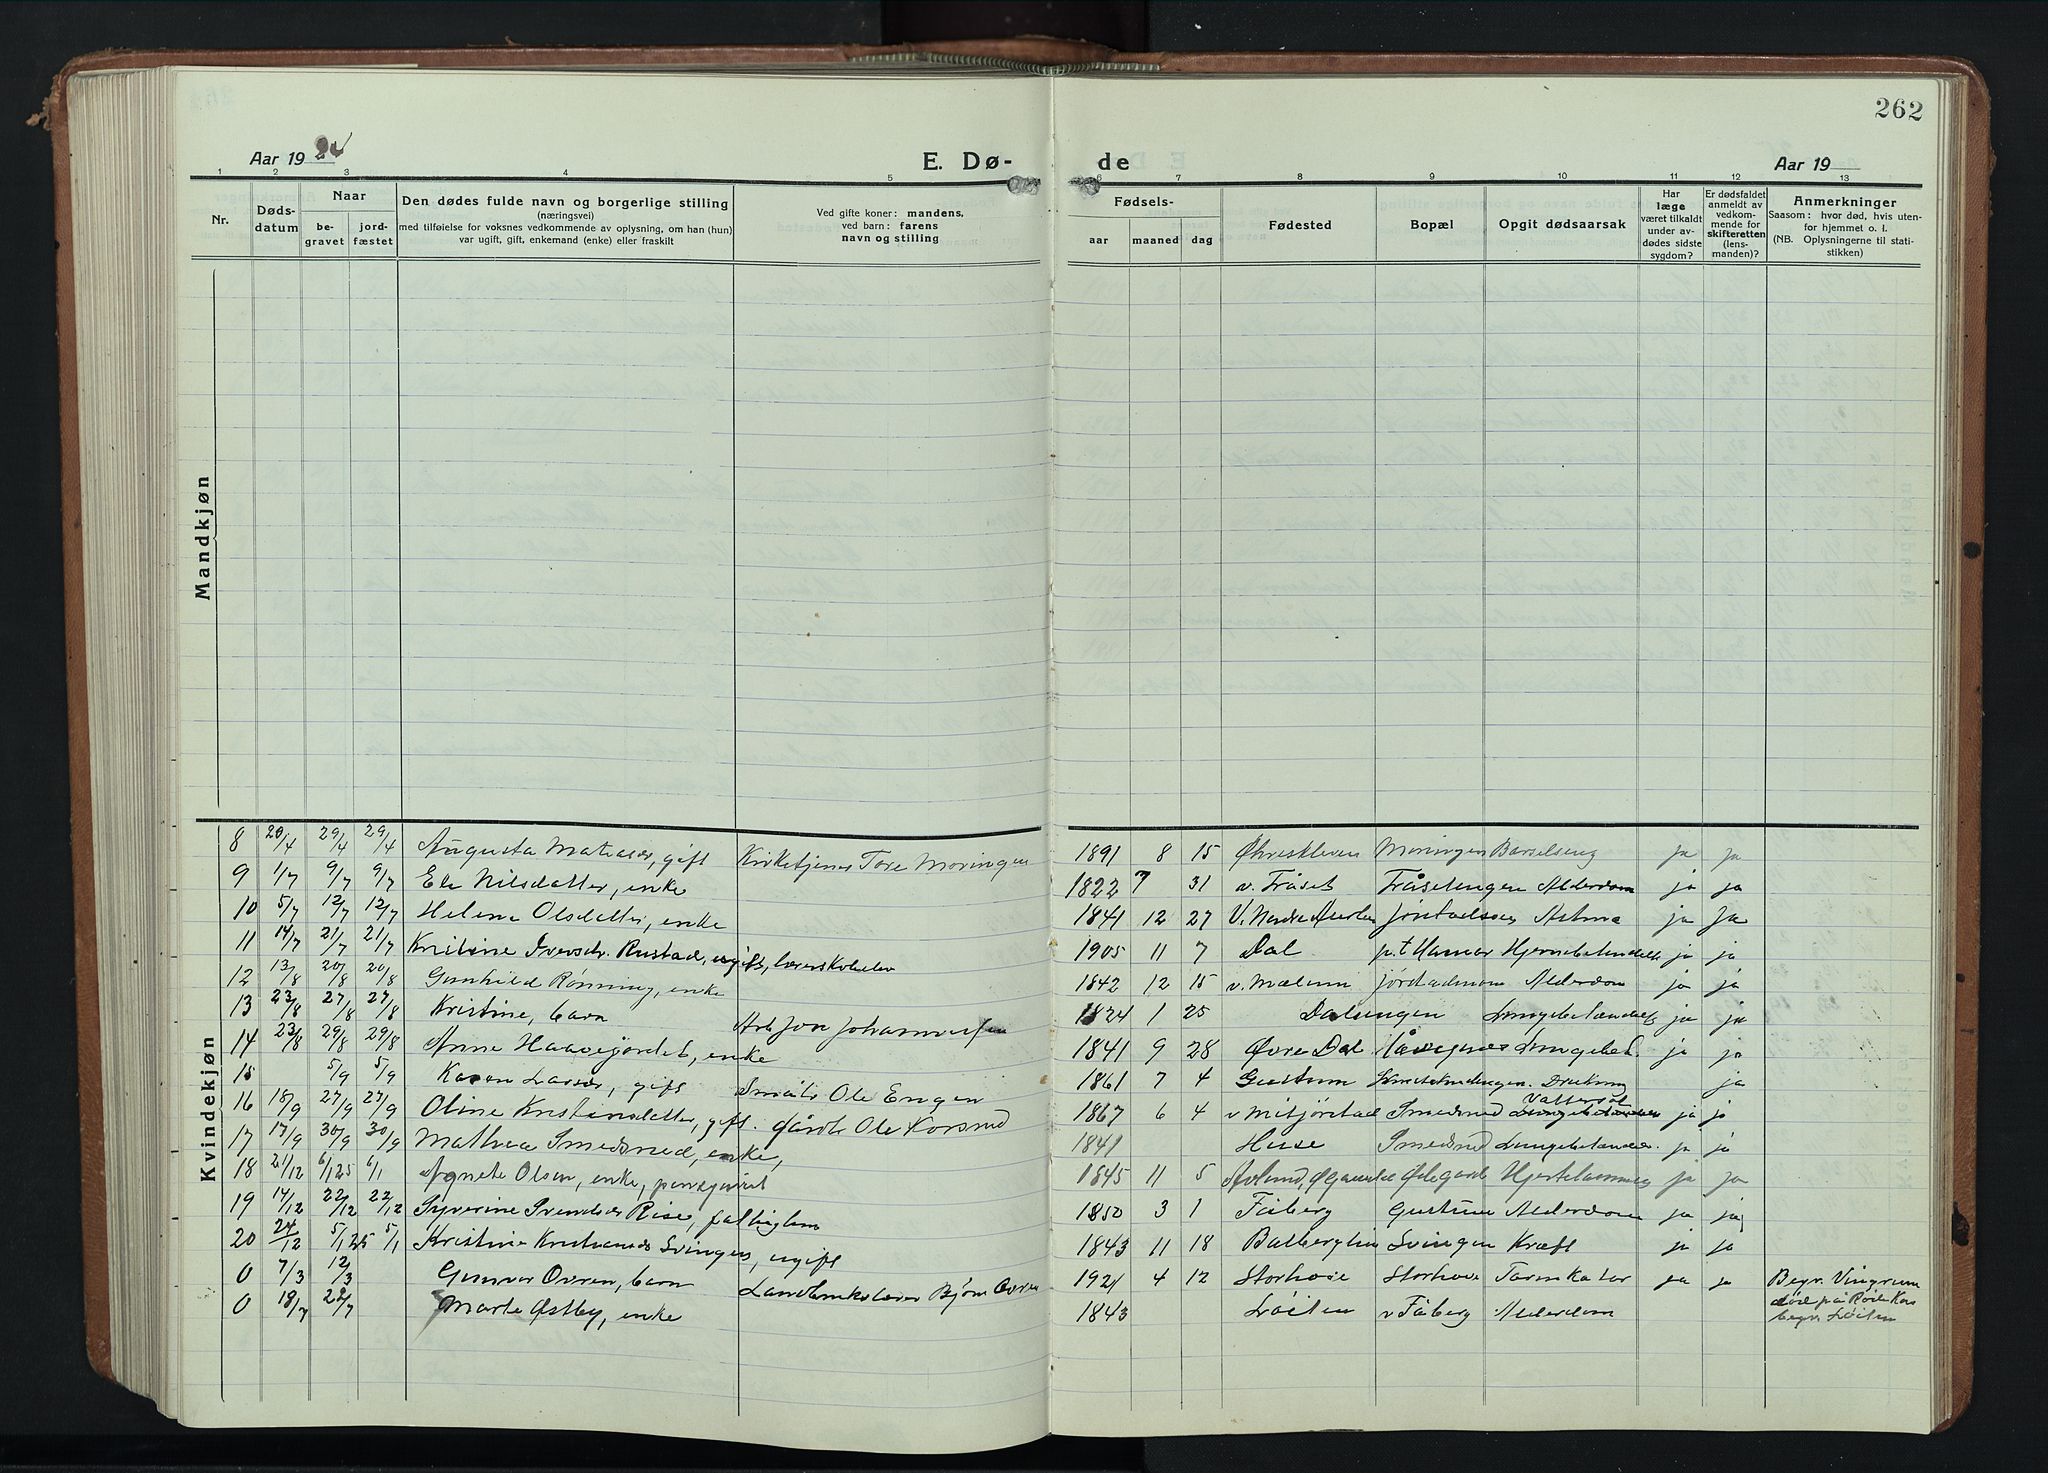 262
Aar 1924
E. Dø-
de
Aar 19
1 2 3 4 5 6 7 8 9 10 11 12 13
Nr.
Døds-
datum
Naar
be-
gravet
jord-
fæstet
Den dødes fulde navn og borgerlige stilling
(næringsvei)
med tilføielse for voksnes vedkommende av oplysning, om han (hun)
var ugift, gift, enkemand (enke) eller fraskilt
Ved gifte koner: mandens,
ved barn: farens
navn og stilling
Fødsels-
aar maaned dag
Fødested
Bopæl
Opgit dødsaarsak
Har
læge
været tilkaldt
under av-
dødes sidste
sygdom?
Er dødsfaldet
anmeldt av
vedkom-
mende for
skifteretten
(lens-
manden)?
Anmerkninger
Saasom: hvor død, hvis uten-
for hjemmet o. l.
(NB. Oplysningerne til stati-
stikken)
Mandkjøn
Kvindekjøn
8 20/4 29/4 29/4 Augusta gift Kirketjener Tore Moringen 1891 8 15 Moringen Barselseng ja ja
9 1/7 9/7 9/7 Eli Nilsdatter, enke 1822 7 31 v. Tråset Tråsetengen Alderdom ja ja
10 5/7 12/7 12/7 Helene Olsdatter, enke 1841 12 27 Astma ja ja
11 14/7 21/7 21/7 Kristine Rustad, ugift, lærerskoleelev 1905 11 7 Dal p.t. Hamar ja ja
12 13/8 20/8 20/8 Gunhild Rønning, enke 1842 12 15 v. Mælum Alderdom ja ja
13 23/8 27/8 27/8 Kristine, barn Arb. Johannessen 1924 1 25 Dalsengen ja ja
14 23/8 29/8 29/8 Anne Haavejordet, enke 1841 9 28 Øvre Dal Lungebet. ja ja
15 5/9 5/9 Karen gift Småbr. Ole Engen 1861 7 4 Gustum Drukning ja
16 18/9 27/9 27/9 Oline Kristiansdatter, gift. Gårdb. Ole Korsrud 1867 6 4 v Mitjørstad Smedsrud Vattersot ja ja
17 17/9 30/9 30/9 Mathea Smedsrud, enke, 1841 Huse Smedsrud ja ja
18 21/12 6/1 25 6/1 Agnete Olsen, enke, 1845 11 5 Ødegaard ja ja
19 14/12 22/12 22/12 Syverine Rise, fattiglem 1850 3 1 Fåberg Gustum Alderdom ja ja
20 24/12 5/1 25 5/1 Kristine Svingen, ugift 1843 11 18 Svingen Kræft ja ja
0 7/3 12/3 Gunvor Ovren, barn Bjørn Ovren 1921 4 12 Storhove Storhove Tarmkatar ja ja Begr. Vingrum
0 18/7 22/7 Marte Østby, enke 1843 Løiten v Fåberg Alderdom død på Røde Kors
begr. Løiten